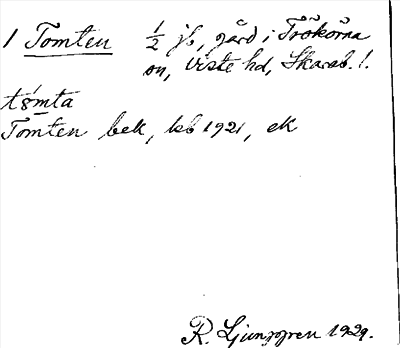 1 Tomten ½ jb, gård i Trökörna
sn, Viste hd, Skarab. l.
tǿmta
Tomten bek, kb 1921, ek
R. Ljunggren 1929.